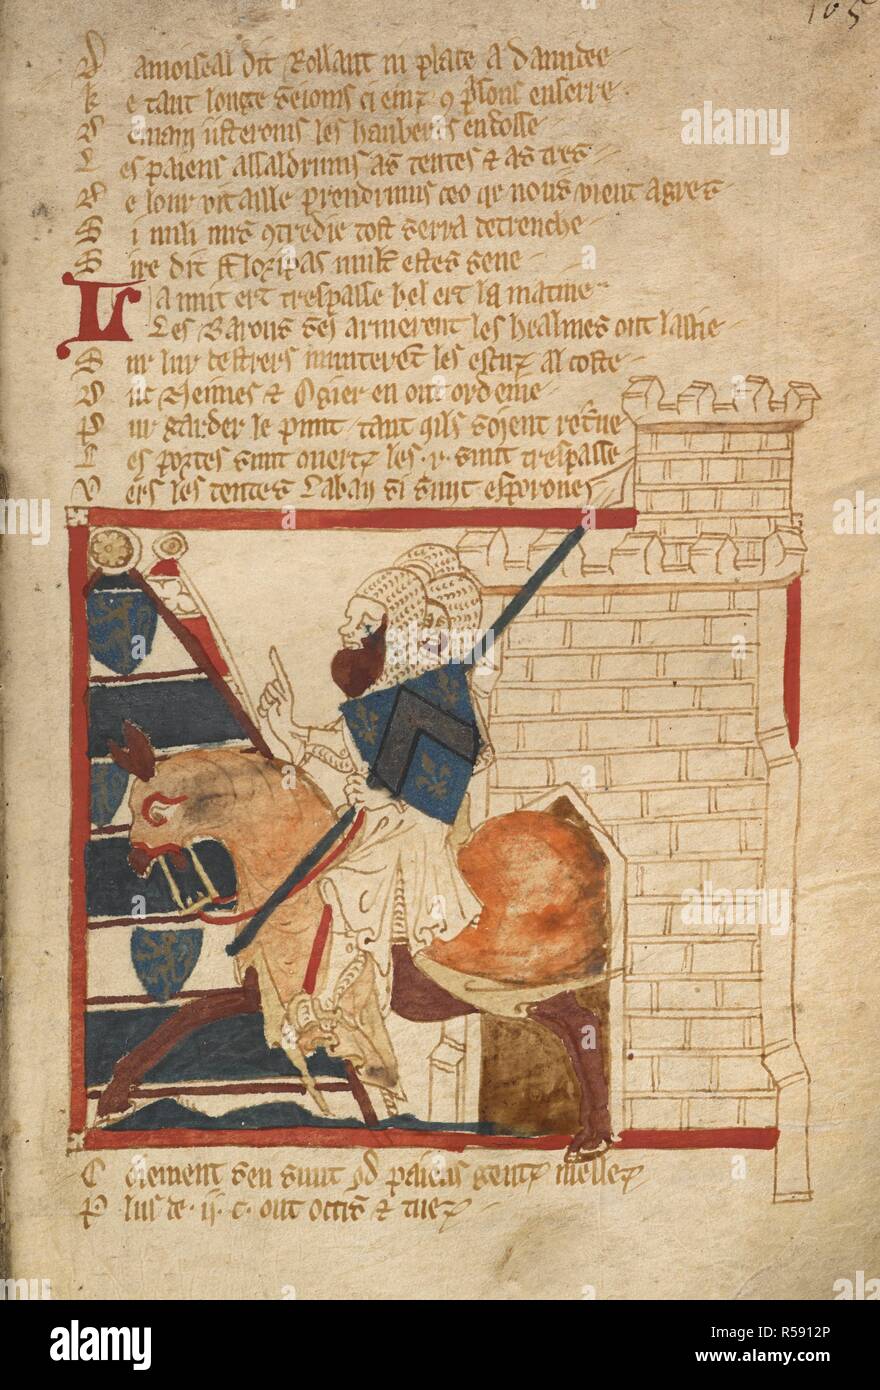 105
D amoiseal dit Rollant ni place a damıdee
k e tant longe seioms ci em 9 psons enserre
D emain isteroms les hauberts endosse
L es paiens assaldrums as tentes & as tres
D e lour vitaille prendrums ceo qe nous vient a gres
S i nuli nus 9tredie tost serra detrenche
S ire dit Floripas mult estes sene
La nuit ert trespasse bel ert la matine
Les Barons ses armerent les healmes ont lascie
S ur lur destrers munterent les escuz al coste
D uc Neimes & Ogier en ont ordeine
P ur garder le punt tant qils soient retne
L es portes sunt overtz les .v. sunt trespasse
V ers les tentes Laban si sunt esporones
C oiement sen sunt od paiens gentz mellez
P lus de .ii.c. ont occis & tuez
alamy
alamy
Image ID: R5912P
www.alamy.com